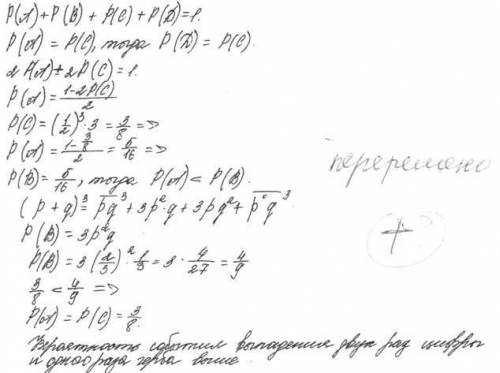 P(A)+P(B)+P(C)+P(D)=1.
P(A)=P(C), тогда P(D)=P(C).
2P(A)+2P(C)=1.
P(A)=\frac{1-2P(C)}{2}
P(C)=(\frac{1}{2})^3·3=\frac{3}{8}=>
P(A)=\frac{1-\frac{3}{8}}{2}=\frac{5}{16}=>
P(B)=\frac{5}{16}, тогда P(A)<P(B).
(p+q)^3=\overline{pq}^3+3p^2·q+3pq^2+\overline{p^0q}^3
P(B)=3p^2q
P(B)=3(\frac{2}{3})^2\frac{1}{3}=3·\frac{4}{27}=\frac{4}{9}
\frac{3}{8}<\frac{4}{9}=>
P(A)=P(C)=\frac{3}{8}.
Вероятность события выпадения двух раз цифры
и одного раза герба выше.
перерешено
+